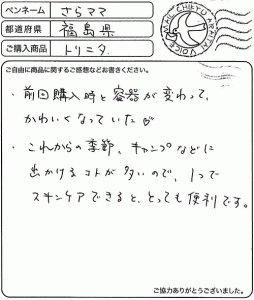 ペンネーム さらママ
都道府県 福島県
ご購入商品 トリニタ
ご自由に商品に関するご感想などお書きください。
・前回購入時と容器が変わって、
かわいくなっていた
・これからの季節、キャンプなどに
出かけるコトが多いので、1つで
スキンケアできると、とっても便利です。
ご協力ありがとうございました。